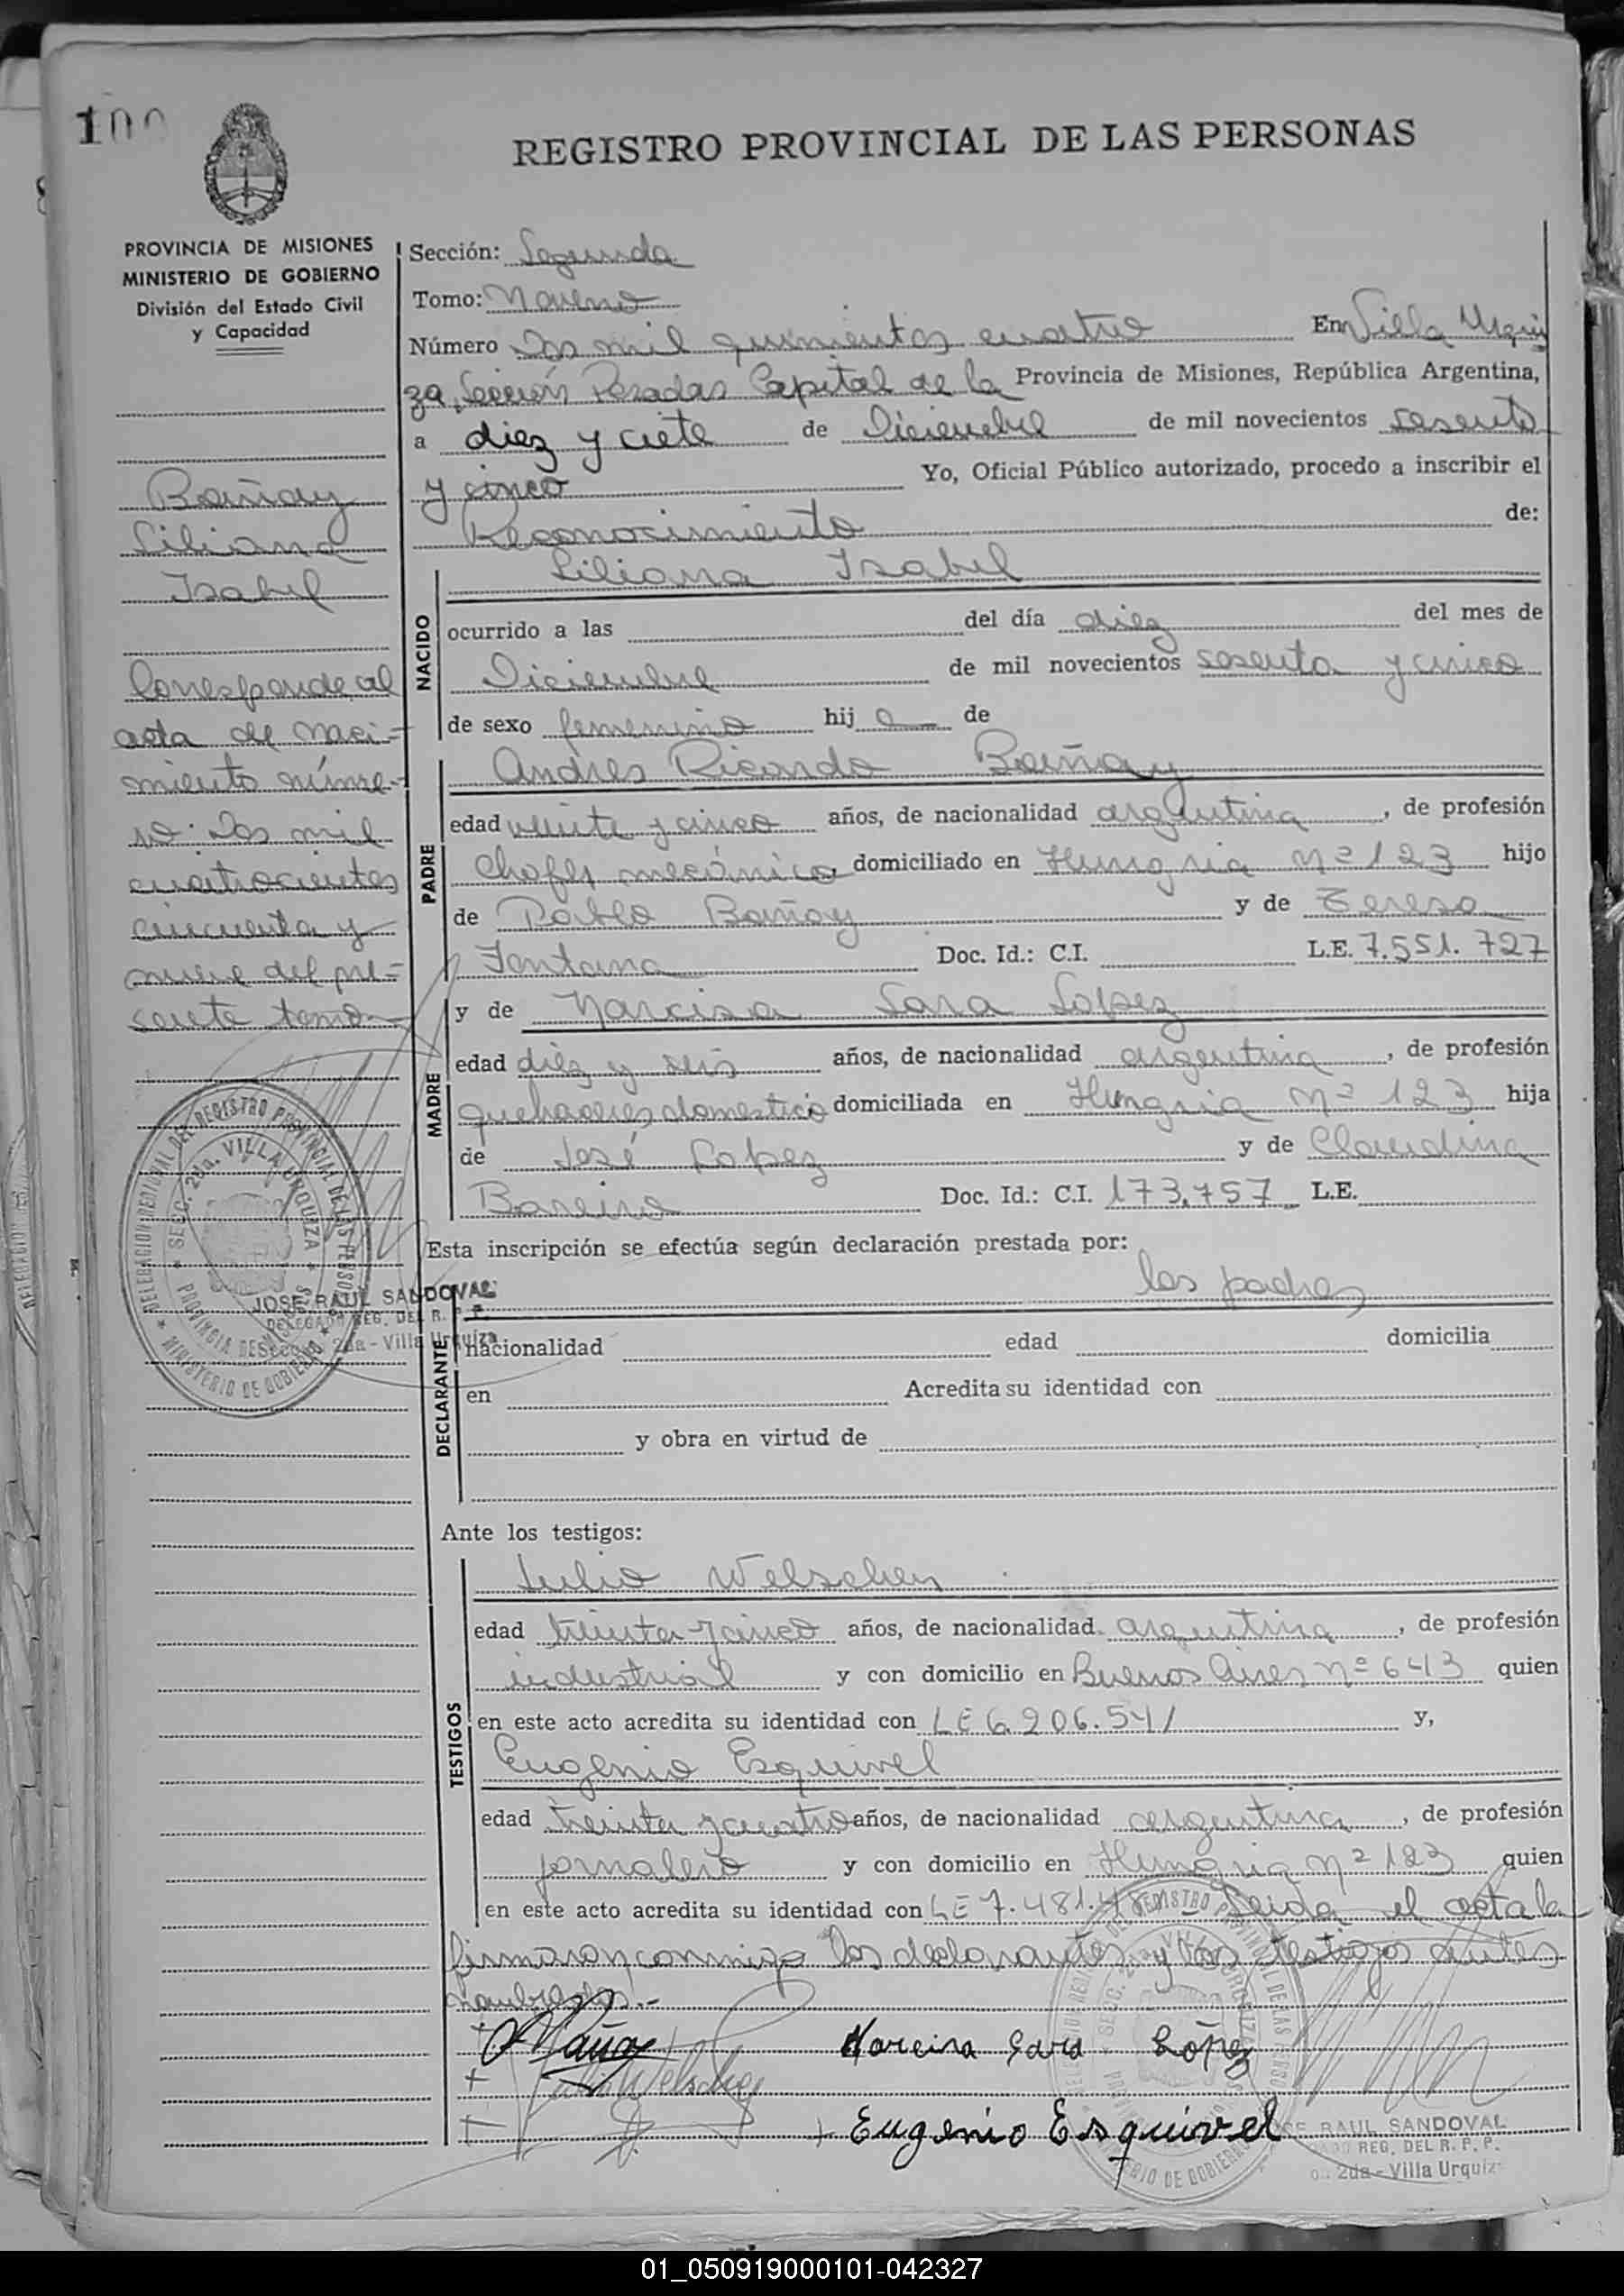 100
REGISTRO PROVINCIAL DE LAS PERSONAS
PROVINCIA DE MISIONES
MINISTERIO DE GOBIERNO
División del Estado Civil
y Capacidad
Bañay
Liliana
Isabel
Corresponde al
acta de naci-
miento núme-
ro: Dos mil
cuatrocientos
cincuenta y
nueve del pre-
sente tomo
DELEGACION REGIONAL DEL REGISTRO PROVINCIAL DE LAS PERSONAS
SECC. 2da. VILLA URQUIZA
PROVINCIA DE MISIONES
MINISTERIO DE GOBIERNO
JOSE RAUL SANDOVAL
DELEGADO REG. DEL R. P. P.
Secc. 2da - Villa Urquiza
Sección: Segunda
Tomo: Noveno
Número Dos mil quinientos cuatro En Villa Urqui
za, Sección Posadas Capital de la Provincia de Misiones, República Argentina,
a diez y ciete de Diciembre de mil novecientos sesenta
y cinco Yo, Oficial Público autorizado, procedo a inscribir el
Reconocimiento de:
NACIDO
Liliana Isabel
ocurrido a las del día diez del mes de
Diciembre de mil novecientos sesenta y cinco
de sexo femenino hij a de
PADRE
Andres Ricardo Bañay
edad veinte y cinco años, de nacionalidad argentina, de profesión
Chofer mecánico domiciliado en Hungria Nº 123 hijo
de Pablo Bañay y de Teresa
Fontana Doc. Id.: C.I. L.E. 7.551.727
MADRE
y de Narcisa Sara Lopez
edad diez y seis años, de nacionalidad argentina, de profesión
quehaceres domestico domiciliada en Hungria Nº 123 hija
de José Lopez y de Claudina
Bareiro Doc. Id.: C.I. 173.757 L.E.
Esta inscripción se efectúa según declaración prestada por:
los padres
DECLARANTE
nacionalidad edad domicilia
en Acredita su identidad con
y obra en virtud de
Ante los testigos:
TESTIGOS
Julio Welschen
edad treinta y cinco años, de nacionalidad argentina, de profesión
industrial y con domicilio en Buenos Aires nº 643 quien
en este acto acredita su identidad con LE 6.206.541 y,
Eugenio Esquivel
edad treinta y cuatro años, de nacionalidad argentina, de profesión
jornalero y con domicilio en Hungria Nº 123 quien
en este acto acredita su identidad con LE 7.481. Leida el acta la
firmaron conmigo los declarantes y los testigos antes
nombrados.-
Narcisa Sara López
Eugenio Esquivel
JOSE RAUL SANDOVAL
REG. DEL R. P. P.
2da - Villa Urquiza
01_050919000101-042327